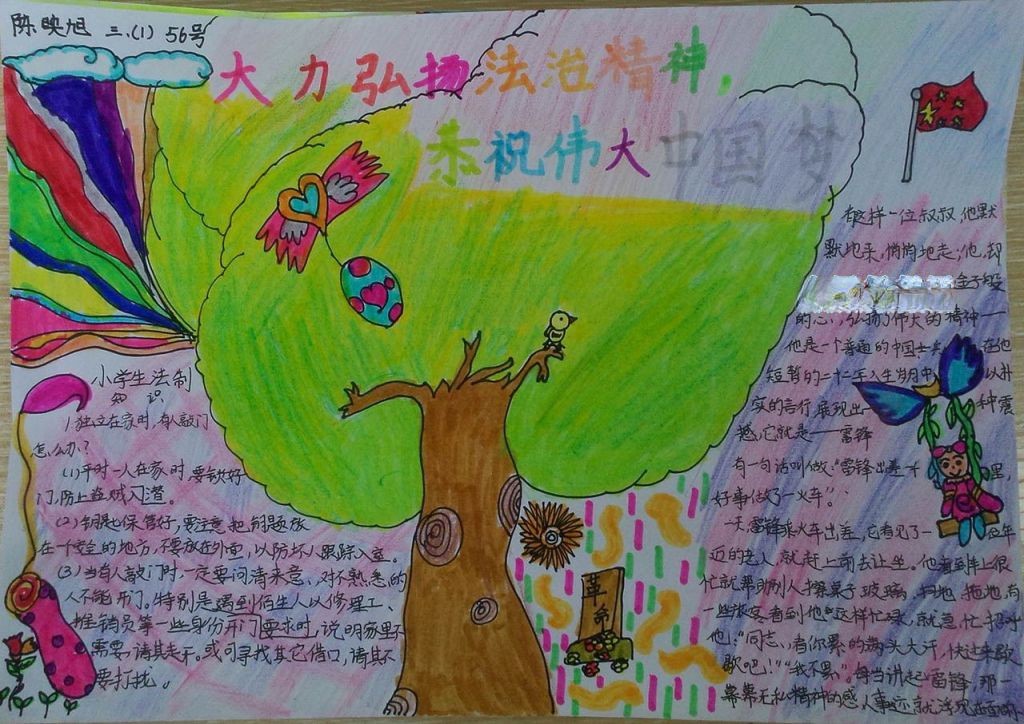 陈映旭 三.(1) 56号
大力弘扬法治精神，
恭祝伟大中国梦
小学生法制
知识
1 独立在家时，有人敲门
怎么办？
(1)平时一人在家时，要锁好
门，防止盗贼入
(2)钥匙保管好，要注意把钥匙放
在一个安全的地方，不要放在外面，以防坏人跟踪入室。
(3)当有人敲门时，一定要问清来意、对不熟悉的
人不能开门。特别是遇到陌生人以修理工、
推销员等一些身份开门要求时，说明家里不
需要，请其走开。或可寻找其它借口，请其不
要打扰。
革命
有这样一位叔叔，他默
默地来，悄悄地走；他，却
金子般
的心，弘扬了伟大的精神——
他是一个普通的中国士兵 在他
短暂的二十二年人生岁月中 以朴
实的言行，展现出一 种震
撼，它就是——雷锋
有一句话叫做：“雷锋出差一千 里，
好事做了一火车”。
一天，雷锋乘火车出差，它看见了一 年
近的老人，就赶上前去让坐，他看到车上很
忙就帮助别人擦桌子玻璃，扫地，拖地，有
一些旅客看到他这样忙碌，就急忙招呼
他：“同志，看你累的满头大汗，快过来歇
歇吧！”“我不累”。每当讲起雷锋，那一
幕幕无私精神的感人事迹就浮现